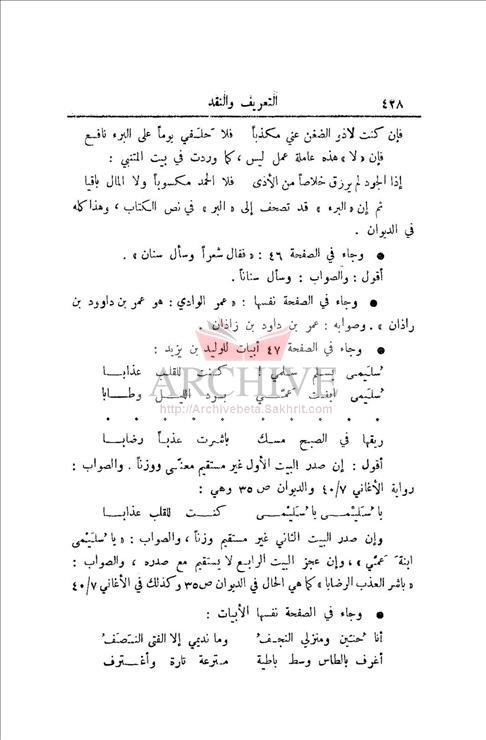 ٤٣٨ التعريف والنقد
فإن كنت لا ذو الضغن عني مكذباً فلا حلفي يوماً على البرء نافع
فإن «لا» هذه عاملة عمل ليس ، كما وردت في بيت المتنبي :
إذا الجود لم يرزق خلاصاً من الأذى فلا الحمد مكسوباً ولا المال باقيا
ثم إن «البرء» قد تصحف إلى «البر» في نص الكتاب ، وهذا كله
في الديوان .
● وجاء في الصفحة ٤٦ : «فقال شعراً وسأل سنان» .
أقول : والصواب : وسأل سناناً .
● وجاء في الصفحة نفسها : «عمر الوادي : هو عمر بن داوود بن
راذان» . وصوابه : عمر بن داود بن زاذان .
● وجاء في الصفحة ٤٧ أبيات للوليد بن يزيد :
سُليمى كنت للقلب عذابا
ARCHIVE
سُليمى ابنة عمّي برد الليل وطابا
http://Archivebeta.Sakhrit.com
ريقها في الصبح مسك باشرت عذباً رضابا
أقول : إن صدر البيت الأول غير مستقيم معنى ووزناً . والصواب :
رواية الأغاني ٤٠/٧ والديوان ص ٣٥ وهي :
يا سُليْمى يا سُليْمى كنت للقلب عذابا
وإن صدر البيت الثاني غير مستقيم وزناً ، والصواب : «يا سُليْمى
ابنةَ عمّي» ، وإن عجز البيت الرابع لا يستقيم مع صدره ، والصواب :
«باشر العذب الرضابا» كما هي الحال في الديوان ص ٣٥ وكذلك في الأغاني ٤٠/٧
● وجاء في الصفحة نفسها الأبيات :
أنا حُنين ومنزلي النجف وما نديمي إلا الفتى القصف
أغرف بالطاس وسط باطية مترعة تارة وأغترف